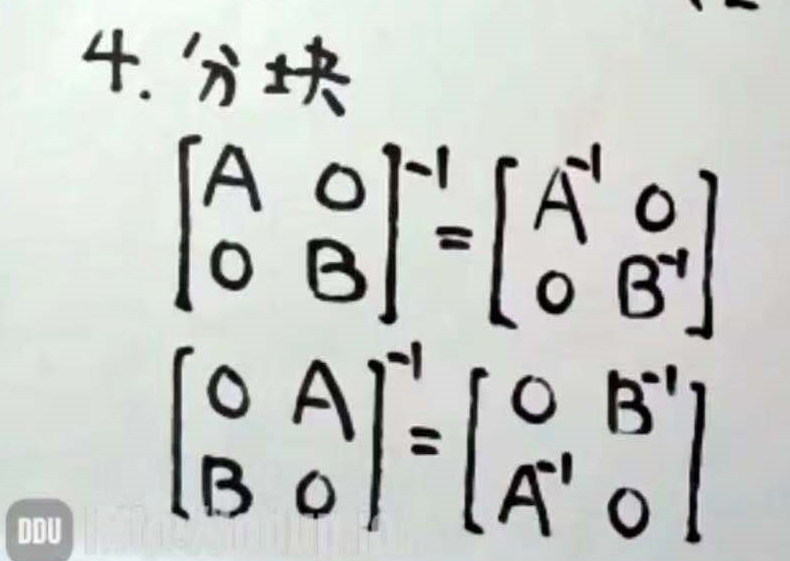 4. 分块
[A 0; 0 B]⁻¹ = [A⁻¹ 0; 0 B⁻¹]
[0 A; B 0]⁻¹ = [0 B⁻¹; A⁻¹ 0]
DDU